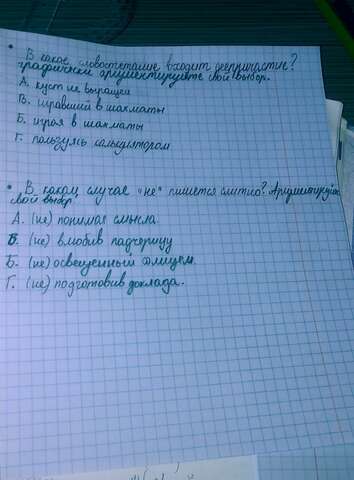 • В какое словосочетание входит деепричастие?
графически аргументируйте свой выбор.
А. куст не выращен
В. игравший в шахматы
Б. играя в шахматы
Г. пользуясь калькулятором
• В каком случае "не" пишется слитно? Аргументируйте
свой выбор
А. (не) понимая смысла
В. (не) влюбив падчерицу
Б. (не) освещенный солнцем.
Г. (не) подготовив доклада.